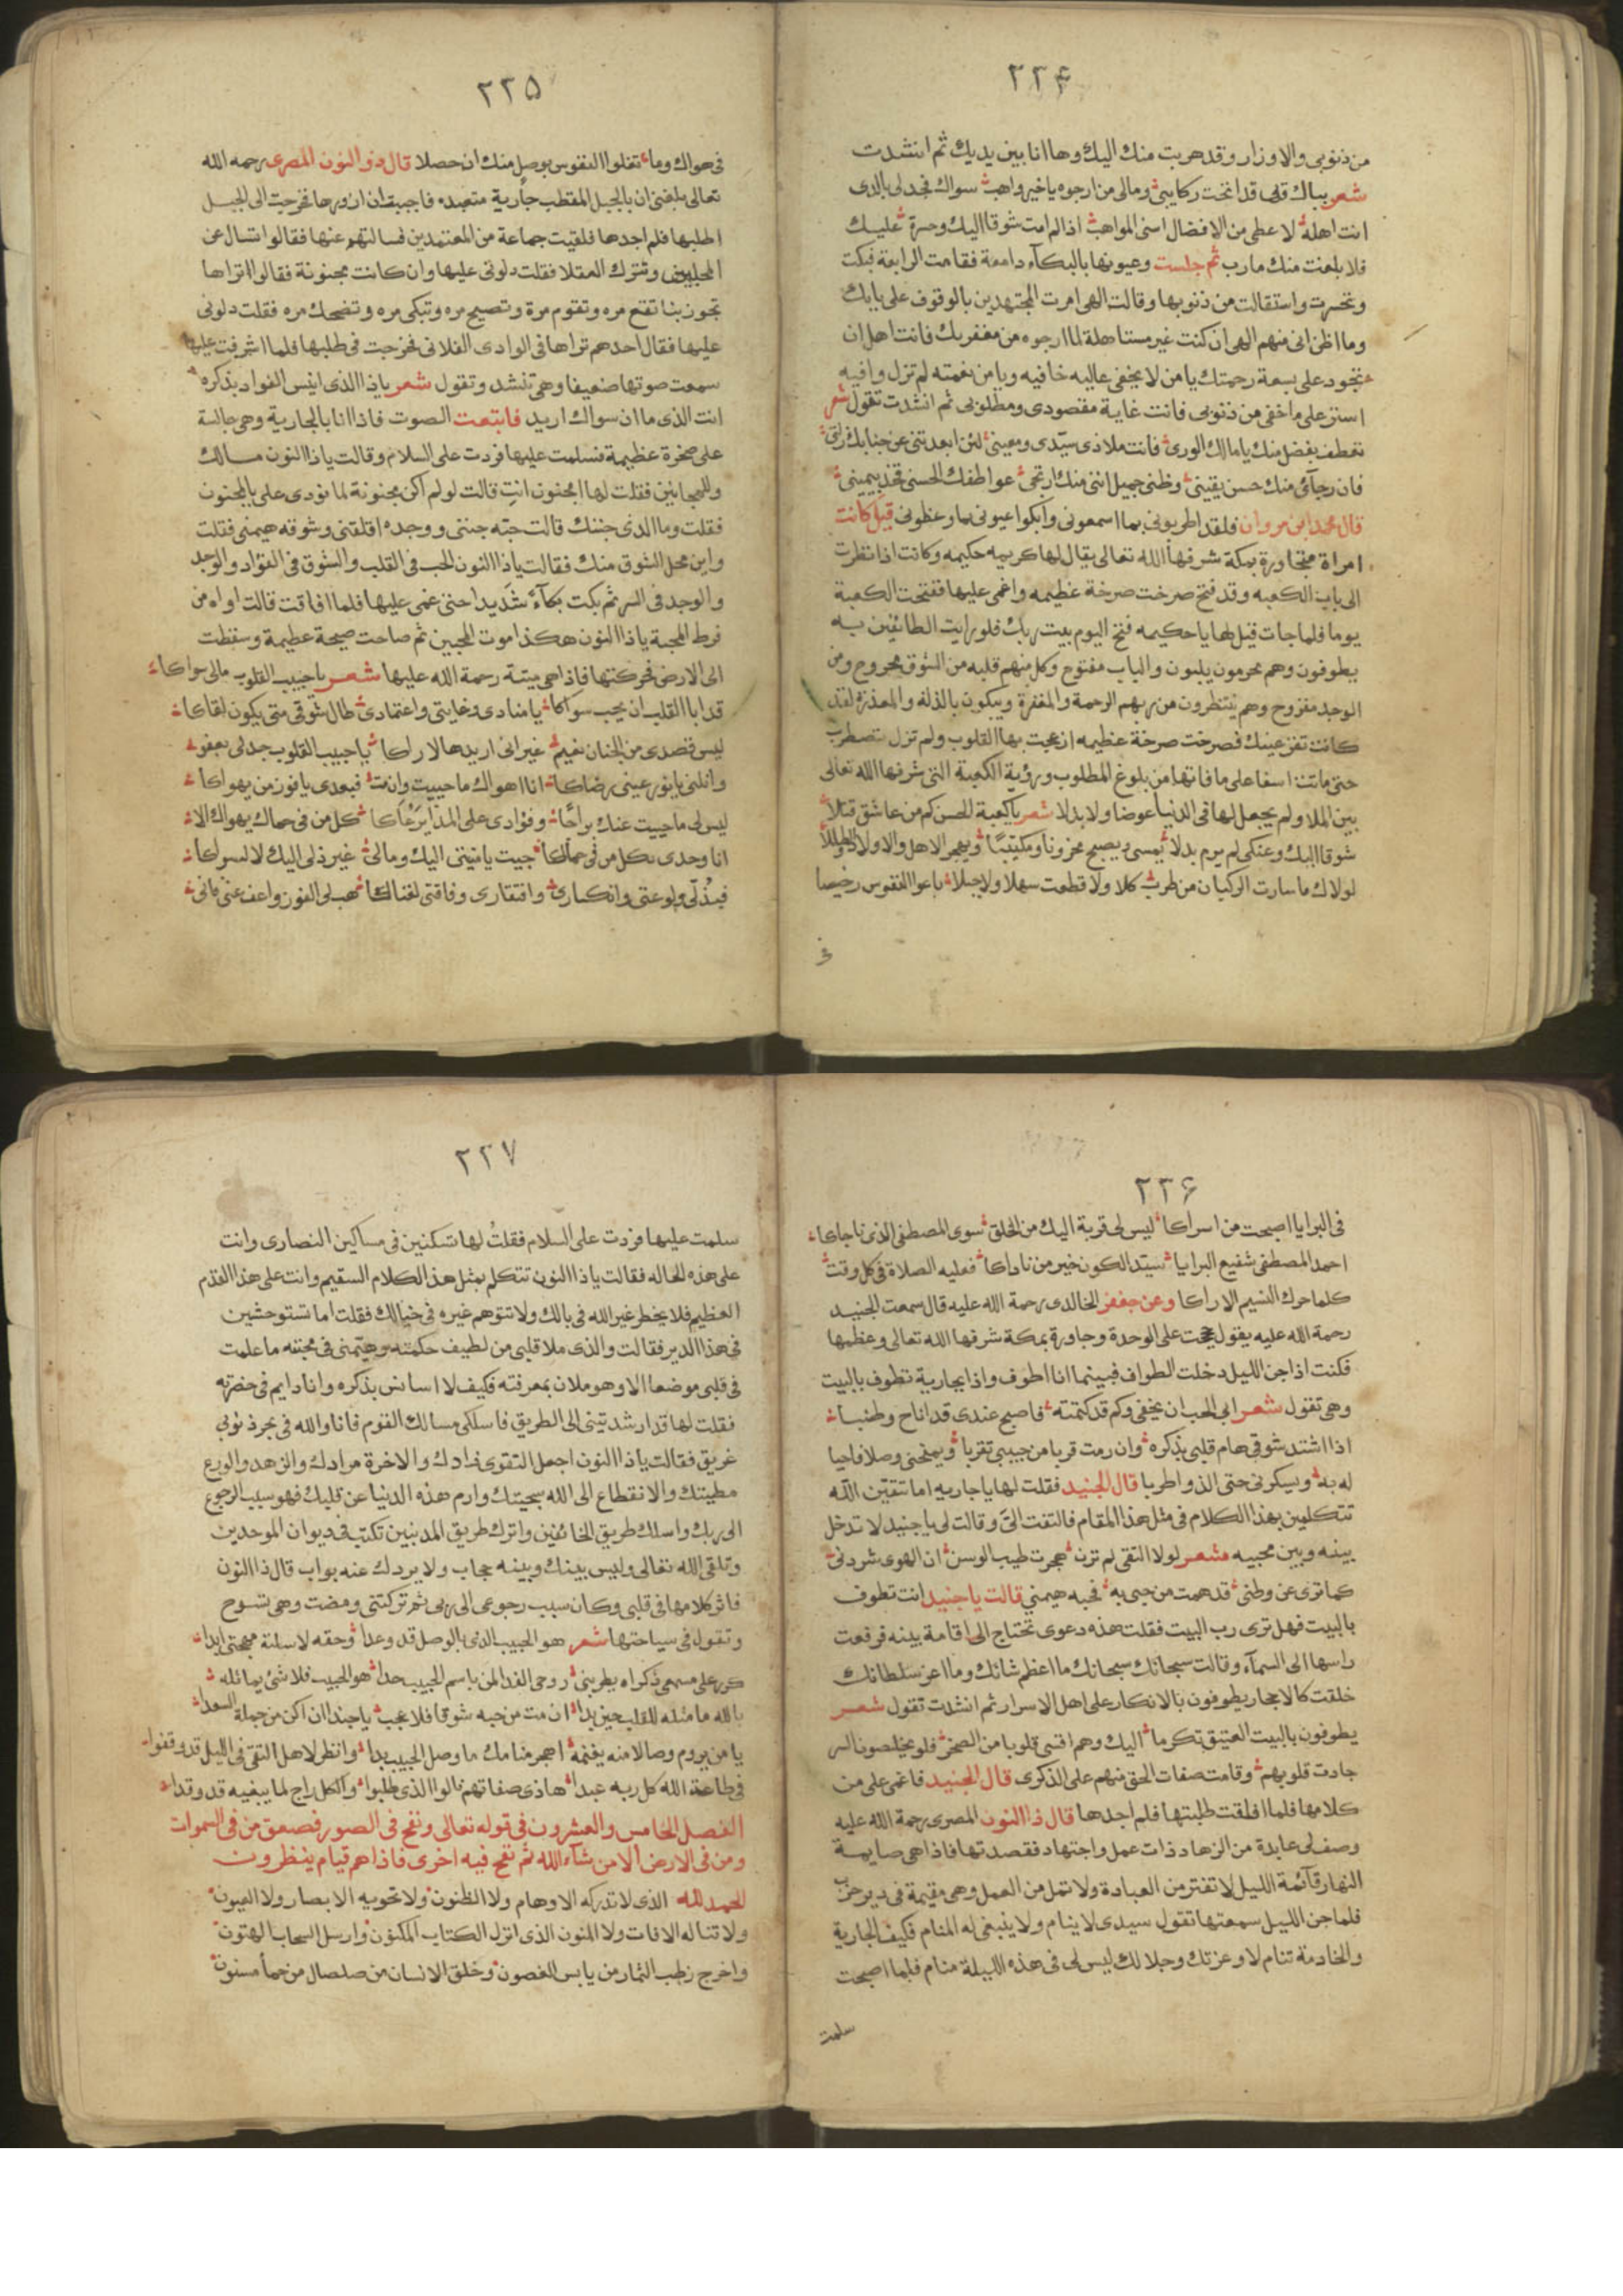 ٢٣٤
من ذنوبى والاوزار وقد هربت منك اليك وها انا بين يديك ثم انشدت
شعر ببابك قلبى قد انخت ركايبى ومالى من ارجوه ياخير واهب سواك فجد لى بالذى
انت اهله لاعطى من الافضال اسنى المواهب اذا لم امت شوقا اليك وحسرة عليك
فلا بلغت منك مارب ثم جلست وعيونها بالبكآء دامعة فقامت الرابعة فبكت
وتحسرت واستقالت من ذنوبها وقالت الهى امرت المجتهدين بالوقوف على بابك
وما اظن انى منهم الهى ان كنت غير مستاهلة لما ارجوه من مغفرتك فانت اهل ان
تجود على بسعة رحمتك يا من لا يخفى عاليه خافيه ويا من نعمته لم تزل وافيه
استر على ما خفى من ذنوبى فانت غاية مقصودى ومطلوبى ثم انشدت تقول شعر
تعطف بفضل منك يا مالك الورى فانت ملاذى سيّدى ومعينى لئن ابعدتنى عن جنابك زلتى
فان رجآئى منك حسن يقينى وظنى جميل اننى منك ارتجى عواطفك الحسنى فخذ بيمينى
قال محمد ابن مروان فلقد اطربونى بما اسمعونى وابكوا عيونى بما وعظونى قيل كانت
امراة مجاورة بمكة شرفها الله تعالى يقال لها كريمه حكيمه وكانت اذا نظرت
الى باب الكعبه وقد فتح صرخت صرخة عظيمه واغمى عليها ففتحت الكعبة
يوما فلما جات قيل لها يا حكيمه فتح اليوم بيت ربك فلو رايت الطائفين به
يطوفون وهم محرمون يلبون والباب مفتوح وكل منهم قلبه من الشوق مجروح ومن
الوجد مقروح وهم ينتظرون من ربهم الرحمة والمغفرة ويبكون بالذلة والمعذرة لقد
كانت تقر عينك فصرخت صرخة عظيمه ازعجت بها القلوب ولم تزل تضطرب
حتى ماتت اسفا على ما فاتها من بلوغ المطلوب ورؤية الكعبة التى شرفها الله تعالى
بين الملا ولم يجعل لها فى الدنيا عوضا ولا بدلا شعر يا كعبة الحسن كم من عاشق قتلا
شوقا اليك وعنكى لم يرم بدلا يمسى ويصبح محزونا ومكتئبًا ويهجر الاهل والاولاد والطللا
لولاك ما سارت الركبان من طرب كلا ولا قطعت سهلا ولا جبلا باعوا النفوس رخيصا
فى
٢٣٥
فى هواك وما تغلوا النفوس بوصل منك ان حصلا قال ذو النون المصرى رحمه الله
تعالى بلغنى ان بالجبل المقطب جارية متعبده فاجبيت ان ازورها فخرجت الى الجبل
اطلبها فلم اجدها فلقيت جماعة من المتعبدين فسالتهم عنها فقالوا تسال عن
المجانين وتترك العقلا فقلت دلونى عليها وان كانت مجنونة فقالوا انراها
تجوز بنا تقع مره وتقوم مرة وتصيح مره وتبكى مره وتضحك مره فقلت دلونى
عليها فقال احدهم تراها فى الوادى الفلانى فخرجت فى طلبها فلما اشرفت عليها
سمعت صوتها ضعيفا وهى تنشد وتقول شعر ياذا الذى انيس الفواد بذكره
انت الذى ما ان سواك اريد فاتبعت الصوت فاذا انا بالجارية وهى جالسة
على صخرة عظيمة فسلمت عليها فردت على السلام وقالت ياذا النون مالك
وللمجانين فقلت لها امجنون انتِ قالت لو لم اكن مجنونة لما نودى على بالمجنون
فقلت وما الذى جننك قالت حبّه جننى ووجده اقلقنى وشوقه هيمنى فقلت
واين محل الشوق منك فقالت ياذا النون الحب فى القلب والشوق فى الفؤاد والوجد
والوجد فى السر ثم بكت بكآءً شديدا حتى غمى عليها فلما افاقت قالت اواه من
فرط المحبة ياذا النون هكذا موت المحبين ثم صاحت صيحة عظيمة وسقطت
الى الارض فحركتها فاذا هى ميتة رحمة الله عليها شعر يا حبيب القلوب مالى سواكا
قد ابا القلب ان يحب سواكا يا منادى وغايتى واعتمادى طال شوقى متى يكون لقاكا
ليس قصدى من الجنان نعيم غير انى اريدها لاراكا يا حبيب القلوب جد لى بعفو
وانلنى يا نور عينى رضاكا انا اهواك ما حييت وان مت فبعدى يا فوز من يهواكا
ليس لى ما حييت عنك براحًا وفؤادى على المدا يرعاكا كل من فى حماك يهواك الا
انا وحدى بكل من فى حماكا جيت يا منيتى اليك ومالى غير ذلى اليك لا لسواكا
فبذلى ولوعتى وانكسارى وافتقارى وفاقتى لغناكا هب لى الفوز واعف عنى فانى
٢٣٦
فى البرايا اصبحت من اسراكا ليس لى قربة اليك من الخلق سوى المصطفى الذى ناجاكا
احمد المصطفى شفيع البرايا سيّد الكون خير من ناداكا فعليه الصلاة فى كل وقت
كلما حرك النسيم الاراكا وعن جعفر الخالدى رحمة الله عليه قال سمعت الجنيد
رحمة الله عليه يقول حججت على الوحدة وجاورة بمكة شرفها الله تعالى وعظمها
فكنت اذا جن الليل دخلت الطواف فبينما انا اطوف واذا بجارية تطوف بالبيت
وهى تقول شعر ابى الحب ان يخفى وكم قد كتمته فاصبح عندى قد اناخ وطنبا
اذا اشتد شوقى هام قلبى بذكره وان رمت قربا من حبيبى تقربا ويمنحنى وصلا فاحيا
له به ويسكرنى حتى الذ واطربا قال الجنيد فقلت لها يا جاريه اما تتقين الله
تتكلمين بهذا الكلام فى مثل هذا المقام فالتفت الىّ وقالت لى يا جنيد لا تدخل
بينه وبين محبيه شعر لولا التقى لم ترن هجرت طيب الوسن ان الهوى شردنى
كما ترى عن وطنى قد همت من حبى به فحبه هيمنى قالت يا جنيد انت تطوف
بالبيت فهل ترى رب البيت فقلت هذه دعوى تحتاج الى اقامة بينه فرفعت
راسها الى السمآء وقالت سبحانك سبحانك ما اعظم شانك وما اعز سلطانك
خلقت كالاحجار يطوفون بالانكار على اهل الاسرار ثم انشدت تقول شعر
يطوفون بالبيت العتيق تكرما اليك وهم اقسى قلوبا من الصخر فلو يخلصون السر
جادت قلوبهم وقامت صفات الحق منهم على الذكرى قال الجنيد فاغمى على من
كلامها فلما افقت طلبتها فلم اجدها قال ذا النون المصرى رحمة الله عليه
وصف لى عابدة من الزهاد ذات عمل واجتهاد فقصدتها فاذا هى صايمة
النهار قآئمة الليل لا تفتر من العبادة ولا تمل من العمل وهى مقيمة فى دير خرب
فلما جن الليل سمعتها تقول سيدى لا ينام ولا ينبغى له المنام فكيف الجارية
والخادمة تنام لا وعزتك وجلالك ليس لى فى هذه الليلة منام فلما اصبحت
سلمت
٢٣٧
سلمت عليها فردت على السلام فقلت لها تسكنين فى مساكين النصارى وانت
على هذه الحاله فقالت ياذا النون تتكلم بمثل هذا الكلام السقيم وانت على هذا القدم
العظيم فلا يخطر غير الله فى بالك ولا تتوهم غيره فى خيالك فقلت اما تستوحشين
فى هذا الدير فقالت والذى ملا قلبى من لطيف حكمته وهيّمنى فى محبته ما علمت
فى قلبى موضعا الا وهو ملان بمعرفته فكيف لا استانس بذكره وانا دايم فى حضرته
فقلت لها قد ارشدتينى الى الطريق فاسلكى مسالك القوم فانا والله فى بحر ذنوبى
غريق فقالت ياذا النون اجعل التقوى زادك والاخرة مرادك والزهد والورع
مطيتك والانقطاع الى الله سجيتك وارم هذه الدنيا عن قلبك فهو سبب الرجوع
الى ربك واسلك طريق الخائفين واترك طريق المذنبين تكتب فى ديوان الموحدين
وتلقى الله تعالى وليس بينك وبينه حجاب ولا يردك عنه بواب قال ذا النون
فاثر كلامها فى قلبى وكان سبب رجوعى الى ربى ثم تركتنى ومضت وهى تسوح
وتقول فى سياحتها شعر هو الحبيب الذى بالوصل قد وعدا وحقه لا سلته مهجتى ابدا
كرر على مسمعى ذكراه يطربنى روحى الفدا لمن باسم الحبيب حدا هو الحبيب فلا شئ يماثله
بالله ما مثله للقلب حين بدا ان مت من حبه شوقا فلا عجب يا حبذا ان اكن من جملة السعدا
يا من يروم وصالا منه يغنمه اهجر منامك ما وصل الحبيب بدا وانظر لاهل التقى فى الليل قد وقفوا
فى طاعة الله كل ربه عبدا هاذى صفاتهم نالوا الذى طلبوا والكل راح لما يبغيه قد وقدا
الفصل الخامس والعشرون فى قوله تعالى ونفخ فى الصور فصعق من فى السموات
ومن فى الارض الا من شآء الله ثم نفخ فيه اخرى فاذا هم قيام ينظرون
الحمد لله الذى لا تدركه الاوهام ولا الظنون ولا تحويه الابصار ولا العيون
ولا تناله الافات ولا المنون الذى انزل الكتاب المكنون وارسل السحاب الهتون
واخرج رطب الثمار من يابس الغصون وخلق الانسان من صلصال من حمأ مسنون